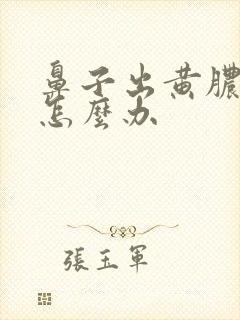 鼻子出黄膿
怎麼办
張玉軍